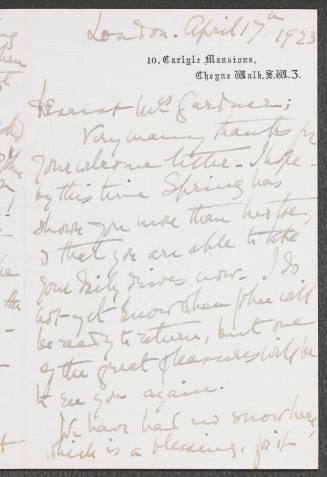 London. April 17th 1923
10, Carlyle Mansions,
Cheyne Walk, S.W.3.
Dearest Mrs Gardner;
Very many thanks for
your welcome letter. I hope
by this time Spring has
shown you more than her toe,
& that you are able to take
your daily drives now. I do
not yet know when I will
be ready to return, but one
of the great pleasures will be
to see you again.
We have had no snow here,
which is a blessing, for it